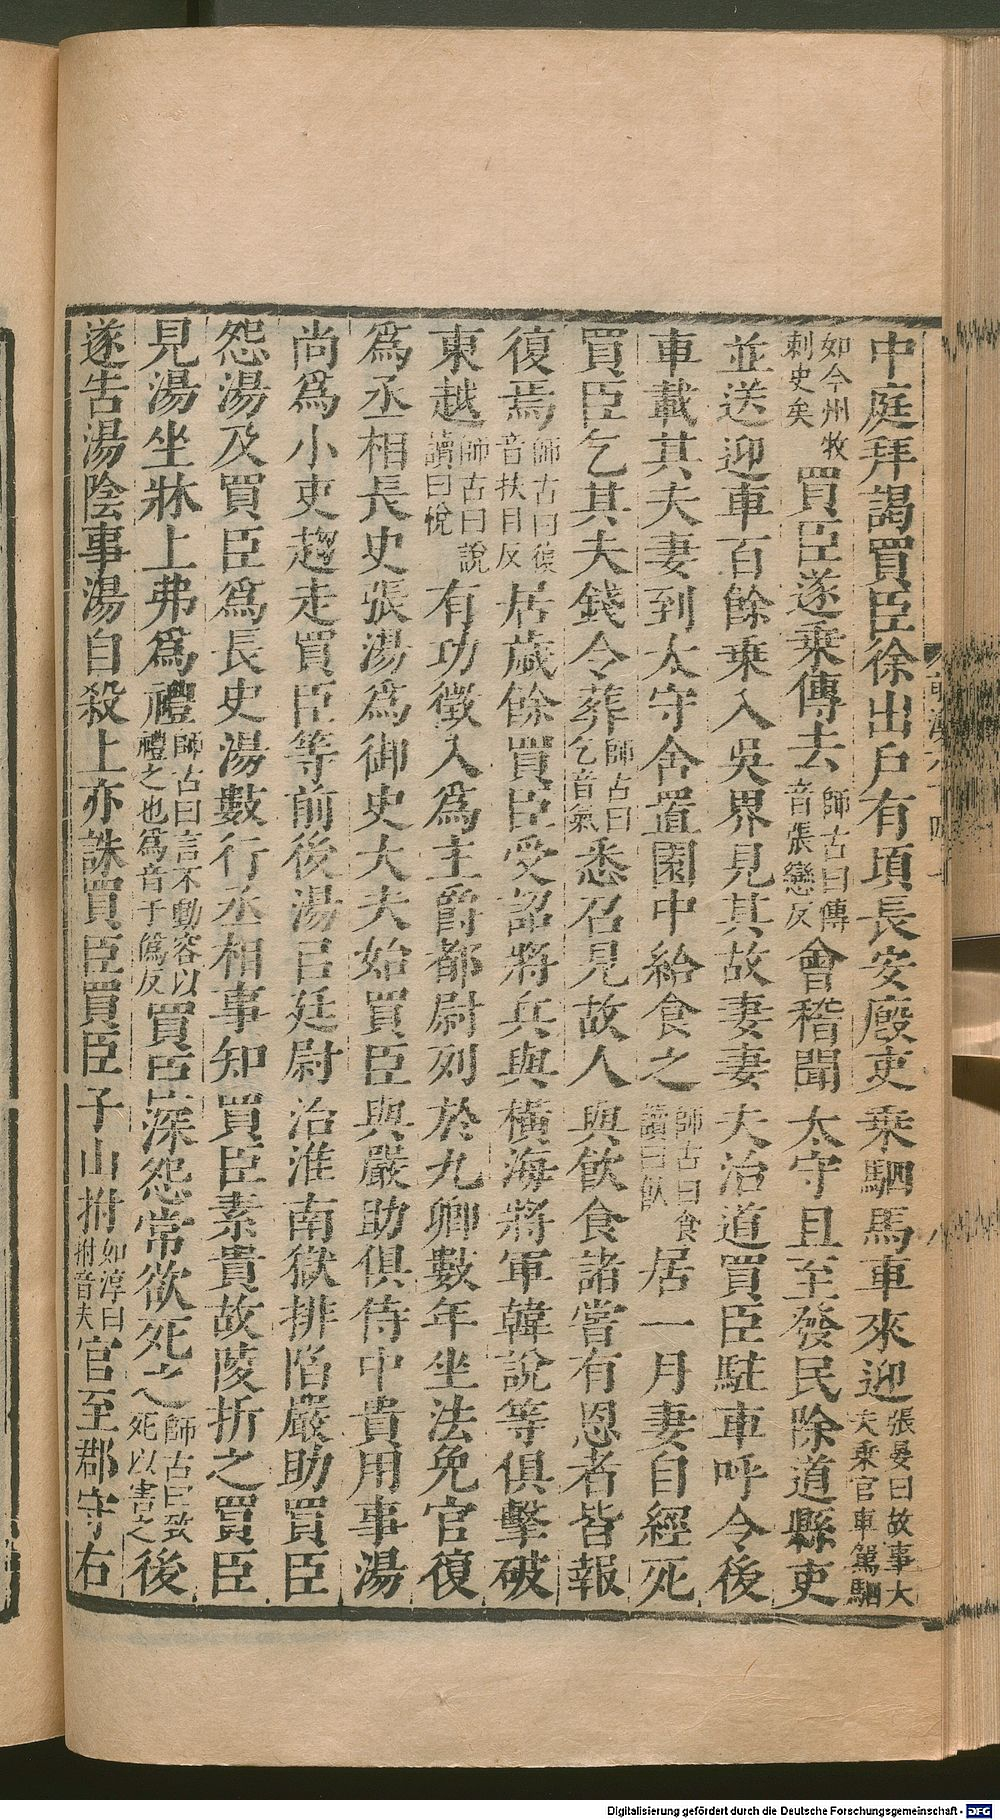 中庭拜謁買臣徐出戶有頃長安廄吏乘駟馬車來迎張晏曰故事大夫乘官車駕駟
如今州牧刺史矣買臣遂乘傳去師古曰傳音張戀反會稽聞太守且至發民除道縣吏
並送迎車百餘乘入吳界見其故妻妻夫治道買臣駐車呼令後
車載其夫妻到太守舍置園中給食之師古曰食讀曰飤居一月妻自經死
買臣乞其夫錢令葬師古曰乞音氣悉召見故人與飲食諸嘗有恩者皆報
復焉師古曰復音扶目反居歲餘買臣受詔將兵與橫海將軍韓說等俱擊破
東越師古曰說讀曰悅有功徵入為主爵都尉列於九卿數年坐法免官復
為丞相長史張湯為御史大夫始買臣與嚴助俱侍中貴用事湯
尚為小吏趨走買臣等前後湯㠯廷尉治淮南獄排陷嚴助買臣
怨湯及買臣為長史湯數行丞相事知買臣素貴故陵折之買臣
見湯坐牀上弗為禮師古曰言不動容以禮之也為音于偽反買臣深怨常欲死之師古曰致死以害之後
遂告湯陰事湯自殺上亦誅買臣買臣子山拊如淳曰拊音夫官至郡守右
Digitalisierung gefördert durch die Deutsche Forschungsgemeinschaft - DFG